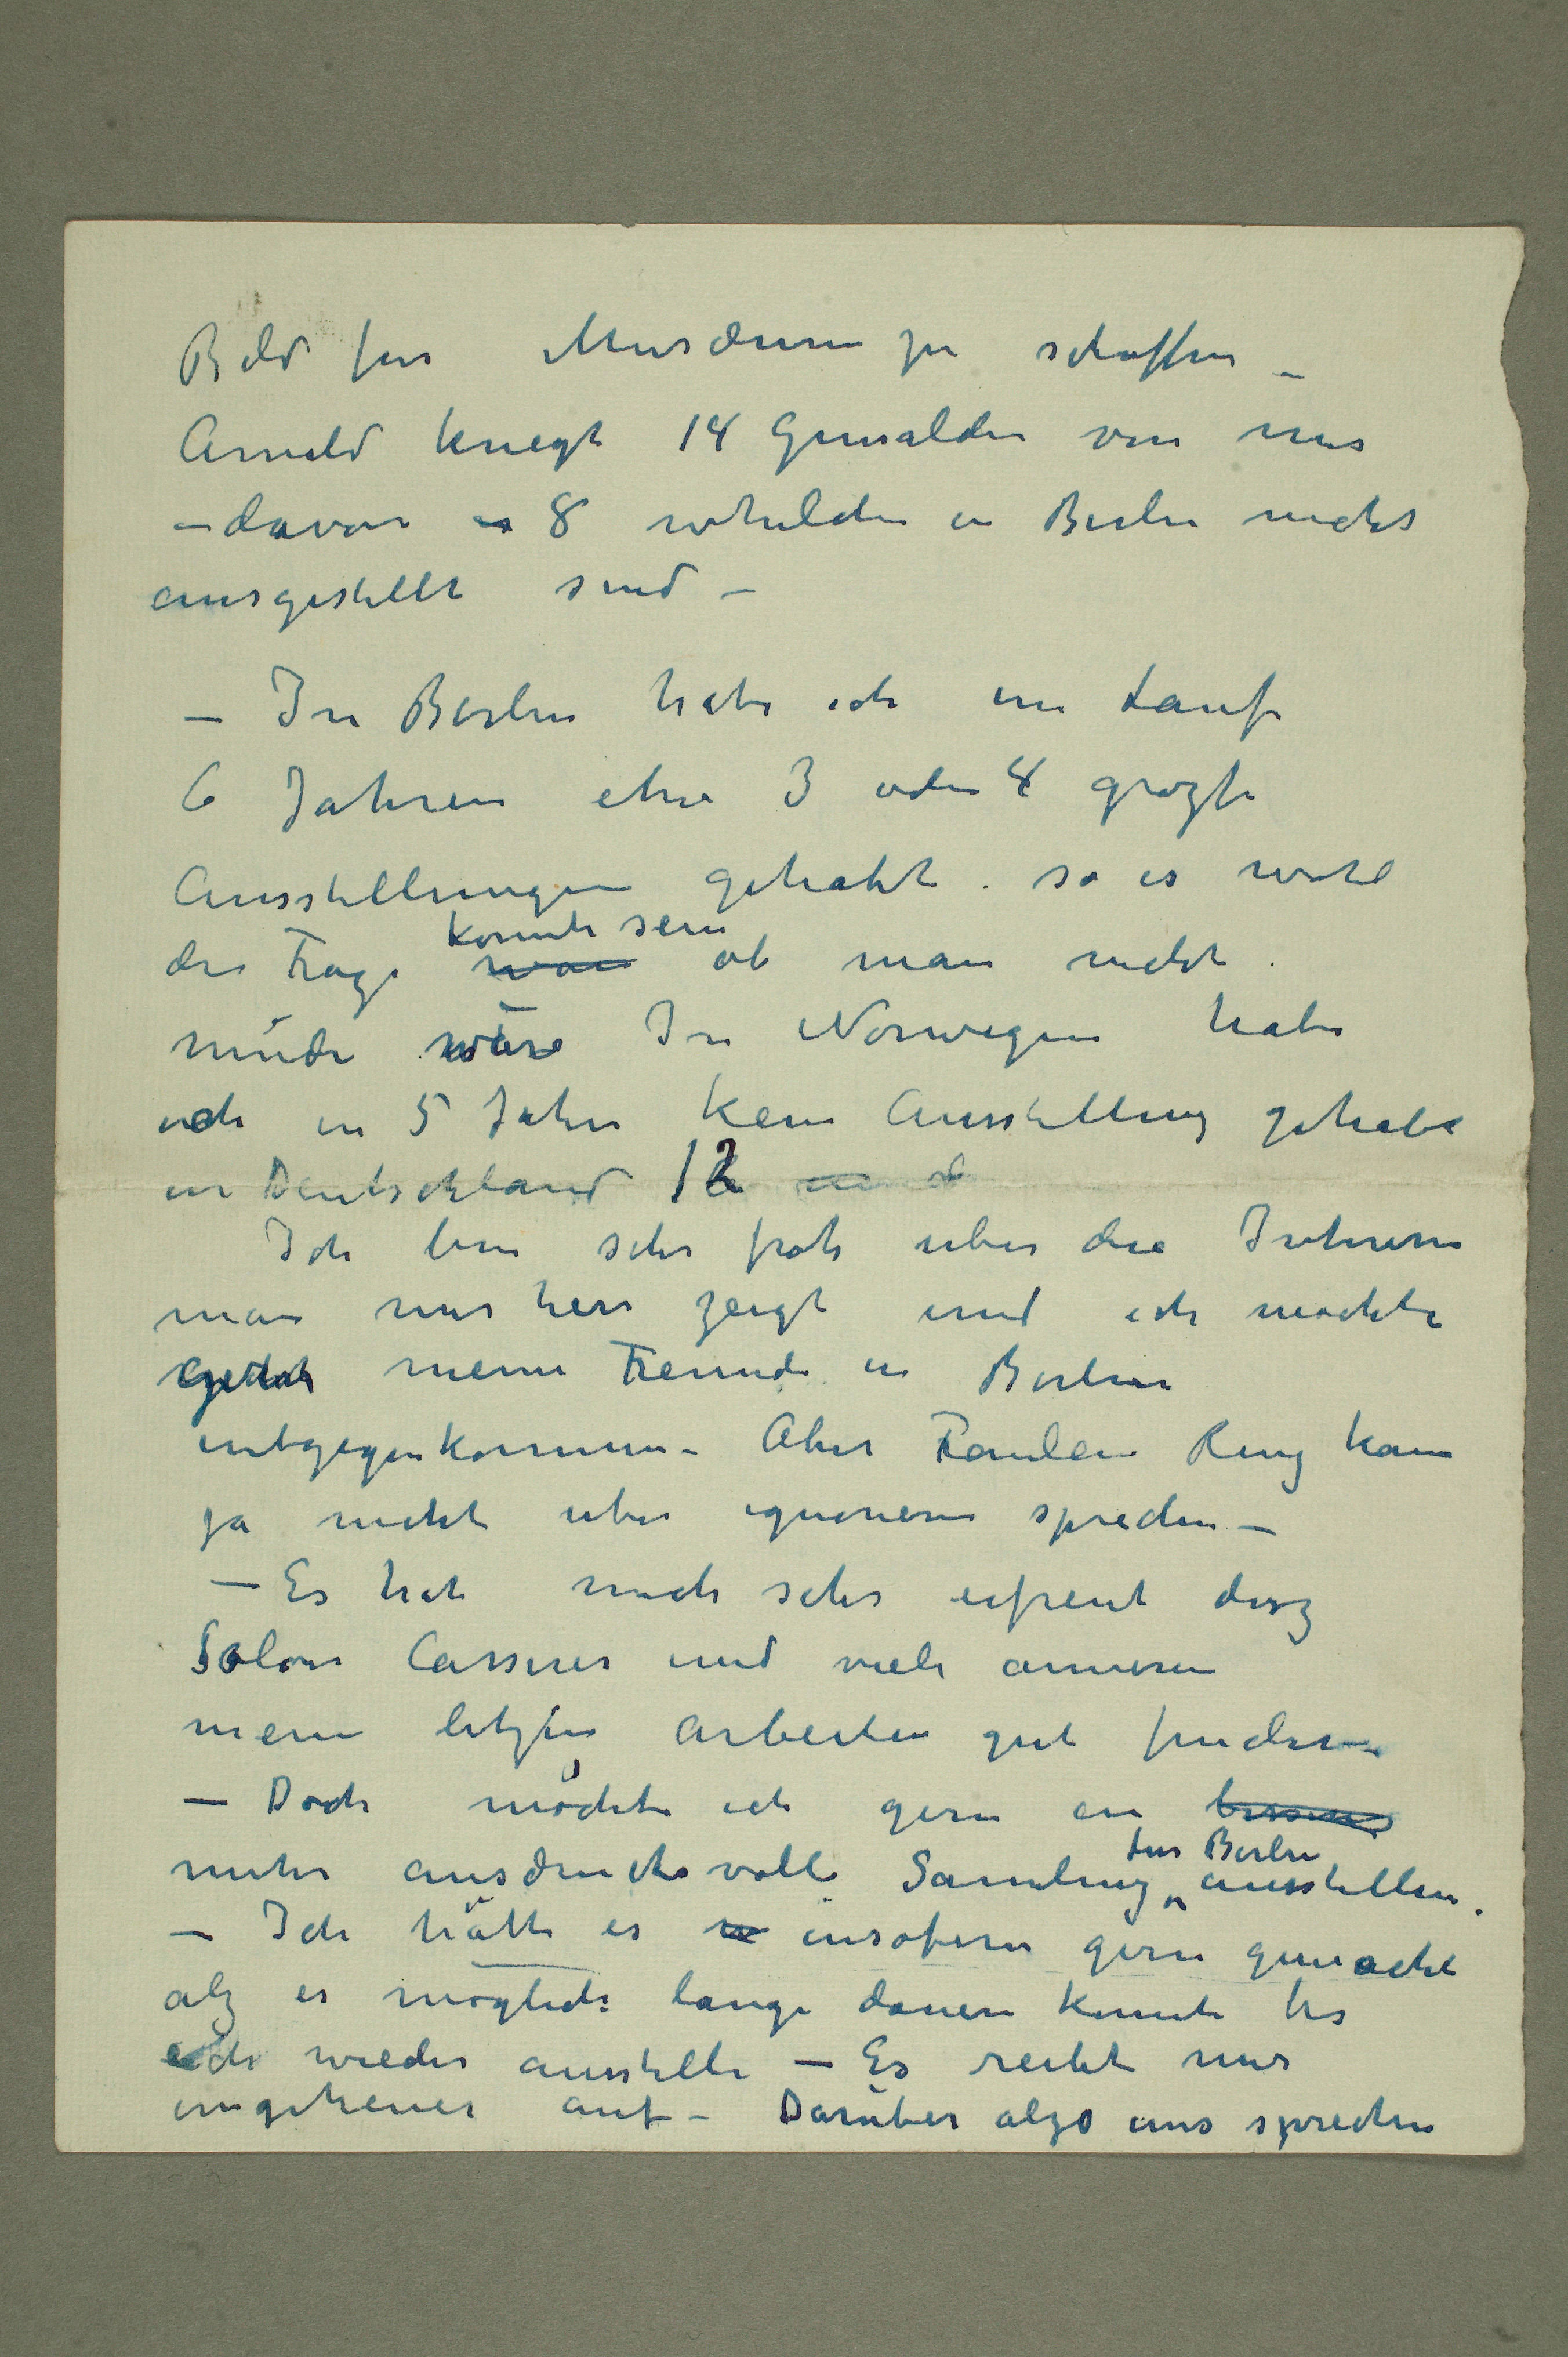 Bild für Musæum zu schaffen –
Arnold kriegt 14 Gemälden von mir
– davon 8 whelche in Berlin nicht
ausgestellt sind –
– In Berlin habe ich im Lauf
6 Jahren etwa 3 oder 4 grozse
Ausstellungen gehabt. so es wohl
die Frage war könnte sein ob man nicht
müde wäre In Norwegen habe
ich in 5 Jahre kein Ausstellung gehabt
in Deutschland 12
Ich bin sehr froh über die Interesse
man mir hier zeigt und ich möchte
meine Freunde in Berlin
entgegenkommen – Aber Fraulein Ring kann
ja nicht uber ignoriren sprechen –
– Es hat mich sehr erfreut dasz
Salon Cassirer und viele anderen
meine letzten Arbeiten gut finden –
– Doch möchte ich gern ein
mehr ausdrucksvolle Samling für Berlin ausstellen.
– Ich hätte es insofern gern gemacht
alz es möglich lange dauern konnte bis
ich wieder ausstelle – Es reibt mir
ungeheuer auf – Darüber alzo uns sprechen